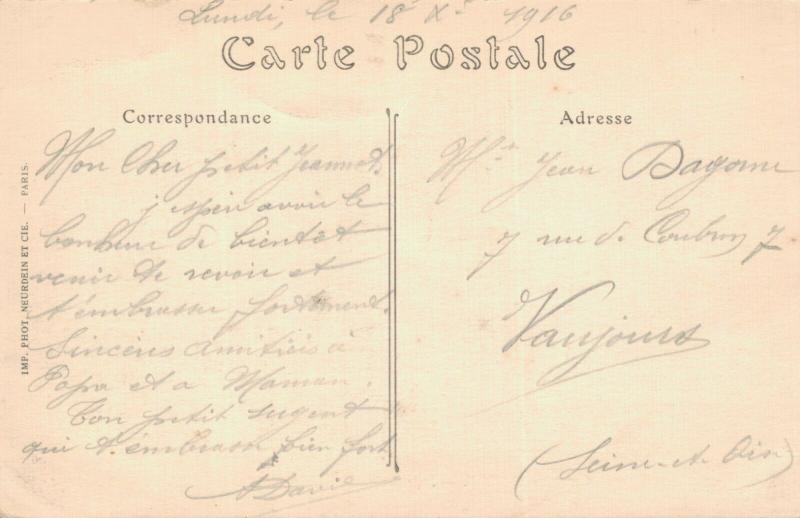 Lundi, le 18 Xe 1916
Carte Postale
Correspondance
Mon Cher petit Jeannot
j espère avoir le
bonheur de bientôt
venir te revoir et
t'embrasser fortement.
Sincères amitiés à
Papa et a Maman.
Ton petit sergent
qui t'embrasse bien fort
ADavid
Adresse
Mr Jean Dagorne
7 rue de Coubron 7
Vaujours
(Seine-et-Oise)
IMP. PHOT. NEURDEIN ET CIE. — PARIS.